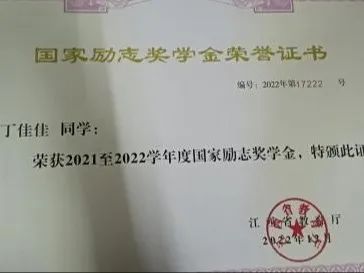 国家励志奖学金荣誉证书
编号：2022年第17222 号
丁佳佳 同学：
荣获2021至2022学年度国家励志奖学金，特颁此证
江 省教 厅
2022年12月